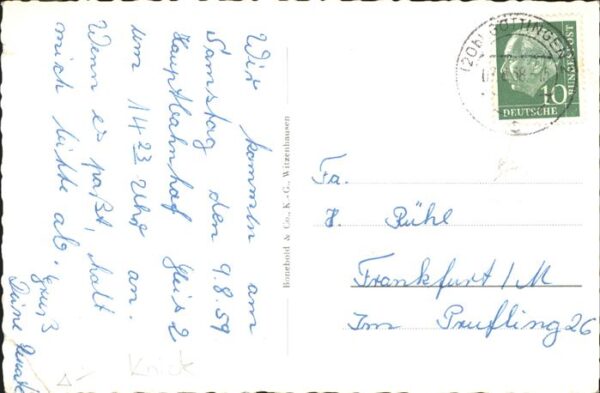 Wir kommen am
Samstag den 9.8.59
Hauptbahnhof Gleis 2
um 14 23 Uhr an.
Wenn es paßt, halt
mich bitte ab.
Gruß
Deine Renate
Bonebold & Co., K.-G., Witzenhausen
(20b) GÖTTINGEN
DEUTSCHE
BUNDESPOST
10
Fa.
H. Rühl
Frankfurt/M
Im Prüfling 26
Knick